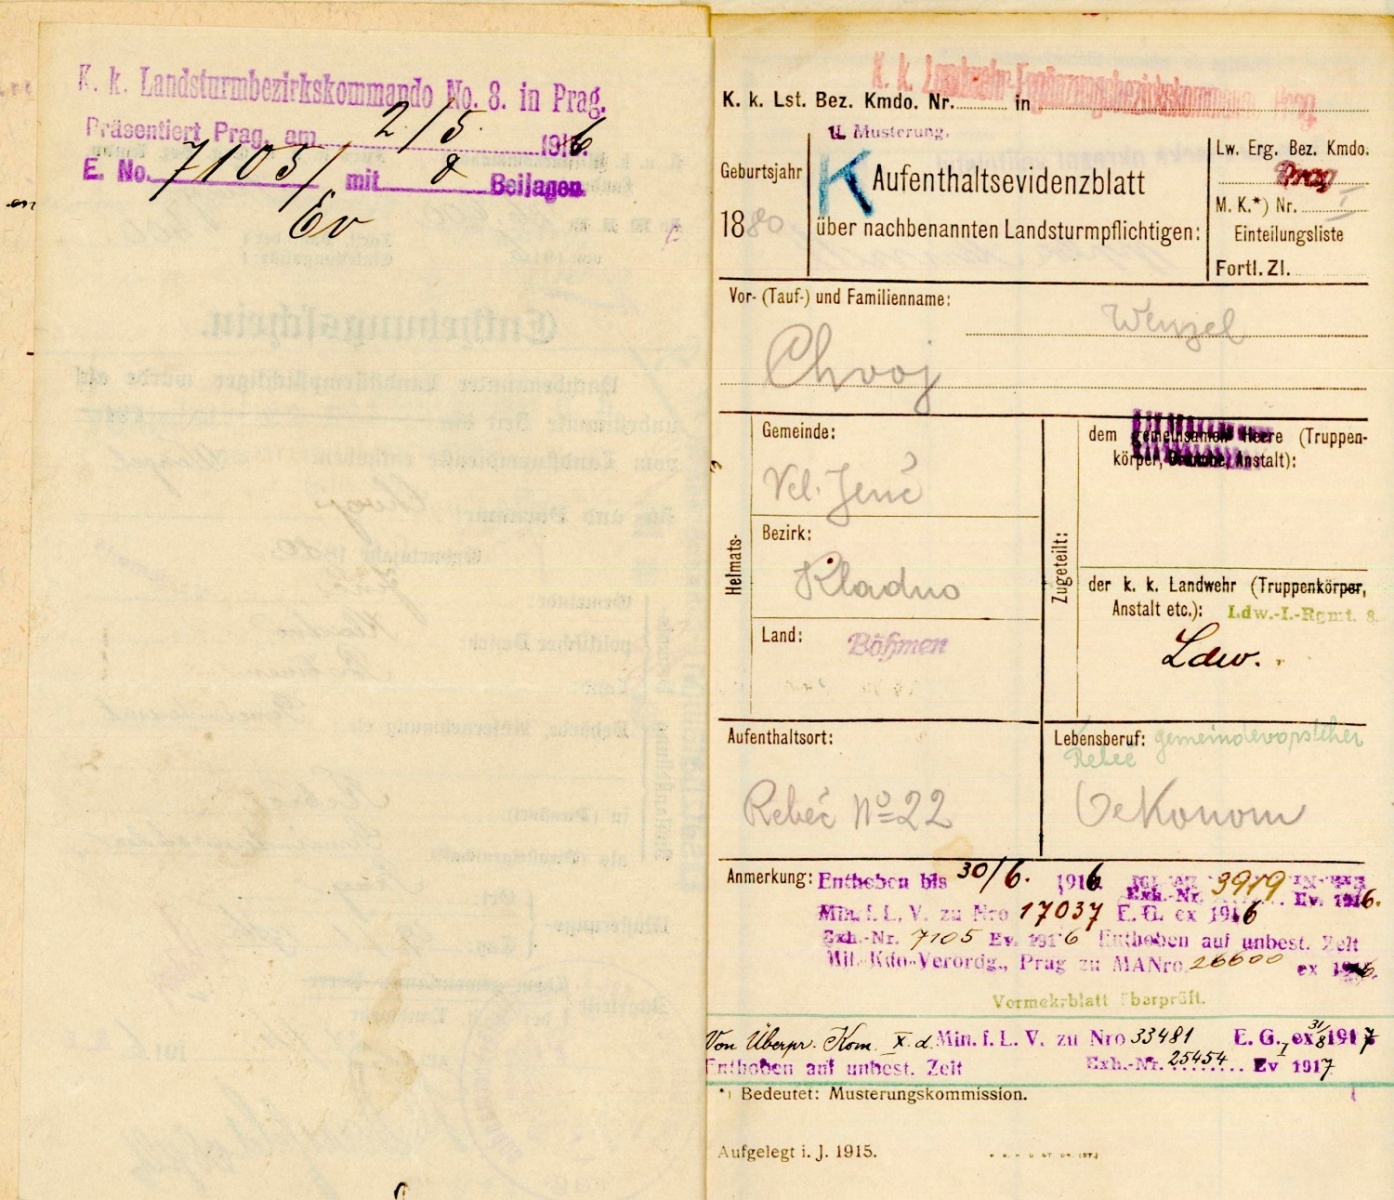 K. k. Landsturmbezirkskommando No. 8. in Prag.
Präsentiert Prag, am 2/5. 1916
E. No. 7105/ mit 8 Beilagen
Ev
K. k. Landwehr-Ergänzungsbezirkskommando Prag
K. k. Lst. Bez. Kmdo. Nr. in
II. Musterung.
Geburtsjahr
1880
K Aufenthaltsevidenzblatt
über nachbenannten Landsturmpflichtigen:
Lw. Erg. Bez. Kmdo.
Prag
M. K.*) Nr. I
Einteilungsliste
Fortl. Zl.
Vor- (Tauf-) und Familienname:
Wenzel
Chvoj
Heimats-
Gemeinde:
Vel. Jenč
Bezirk:
Kladno
Land: Böhmen
Zugeteilt:
dem gemeinsamen Heere (Truppen-
körper, Anstalt):
der k. k. Landwehr (Truppenkörper,
Anstalt etc.): Ldw.-I.-Rgmt. 8.
Ldw.
Aufenthaltsort:
Rebeč No 22
Lebensberuf: Gemeindevorsteher
Rebeč
Oekonom
Anmerkung: Enthoben bis 30/6. 1916
Exh.-Nr. 3919 Ev. 1916.
Min. f. L. V. zu Nro 17037 E. G. ex 1916
Exh.-Nr. 7105 Ev. 1916 Enthoben auf unbest. Zeit
Mil.-Kdo-Verordg., Prag zu MANro. 26600 ex 1916.
Vormerkblatt überprüft.
Von Überpr. Kom. X. d. Min. f. L. V. zu Nro 33481 E. G. ex 31/8 1917
Enthoben auf unbest. Zeit Exh.-Nr. 25454 Ev 1917
*) Bedeutet: Musterungskommission.
Aufgelegt i. J. 1915.